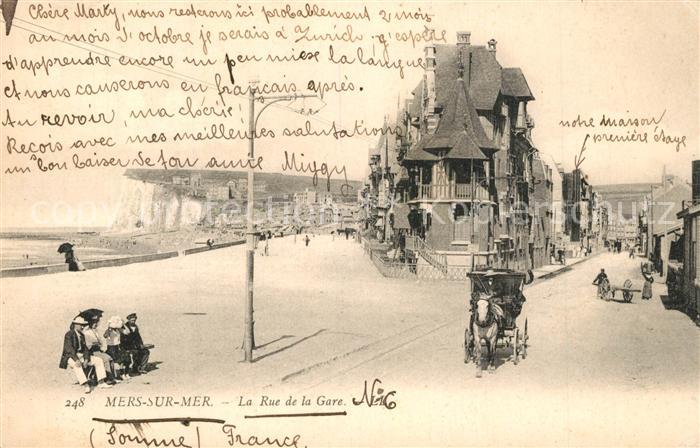 Chère Marty, nous resterons ici probablement 2 mois
au mois d'octobre je serais à Zurich j'espère
d'apprendre encore un peu miese la langue
et nous causerons en français après.
Au revoir, ma chérie,
Reçois avec mes meilleures salutations
un bon baiser de ton amie Miggy
notre maison
première étage
248 MERS-SUR-MER. - La Rue de la Gare. No 6
(Somme) France